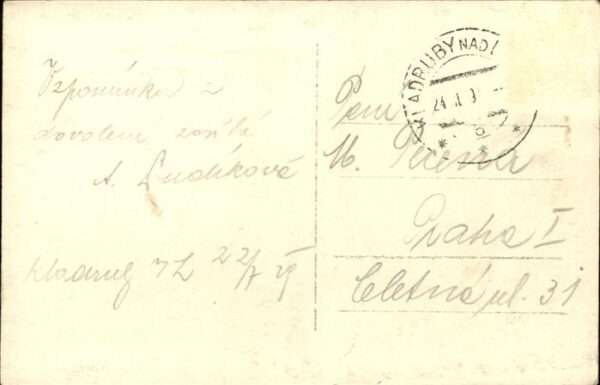 Vzpomínku z
dovolené zasílá
A. Ludíková
Kladruby n L 22/
KLADRUBY NAD L
24
Pan
M.
Praha I
Celetná ul. 31